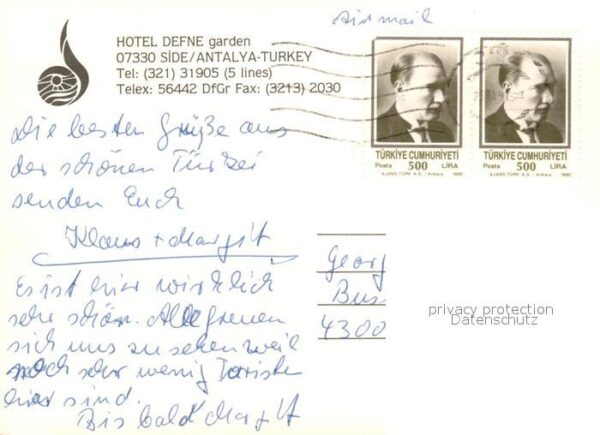 Airmail
HOTEL DEFNE garden
07330 SİDE/ANTALYA-TURKEY
Tel: (321) 31905 (5 lines)
Telex: 56442 DfGr Fax: (3213) 2030
TÜRKİYE CUMHURİYETİ
Posta 500 LİRA
AJANS-TÜRK A.Ş. - Ankara 1990
TÜRKİYE CUMHURİYETİ
Posta 500 LİRA
AJANS-TÜRK A.Ş. - Ankara 1990
Die besten Grüße aus
der schönen Türkei
senden Euch
Klaus + Margit
Es ist hier wirklich
sehr schön. Alle freuen
sich uns zu sehen weil
noch sehr wenig Touristen
hier sind.
Bis bald Margit
Georg
Bus
4300
privacy protection
Datenschutz